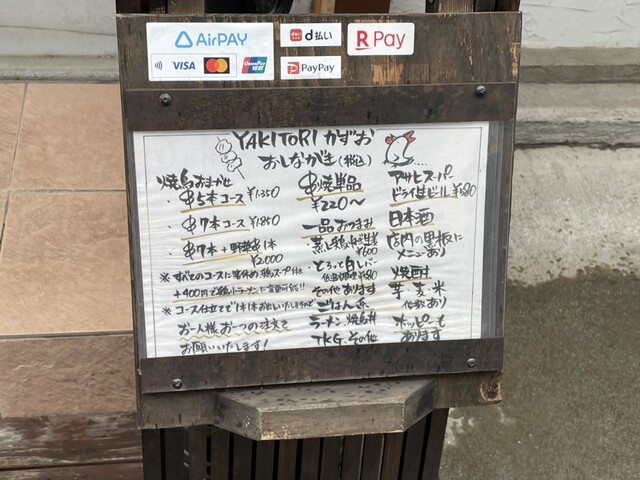 AirPAY
d払い
R Pay
VISA
mastercard
UnionPay
PayPay
YAKITORI かずお
おしながき(税込)
焼鳥おまかせ
・串5本コース ¥1350
・串7本コース ¥1850
・串7本+野菜串1本
¥2000
※すべてのコースに
+400円で
※コース仕立てで1本1本お出しいたしますので
お一人様お一つの注文を
お願いいたします!
串焼単品
¥220〜
一品おつまみ
・蒸し鶏
¥600
・とろっと白レバー
低温調理 ¥680
その他あります
ごはん系
ラーメン、焼鳥丼
TKG、その他
アサヒスーパー
ドライ生ビール ¥680
日本酒
店内の黒板に
メニューあり
焼酎
芋・麦・米
各種あり
ホッピーも
あります